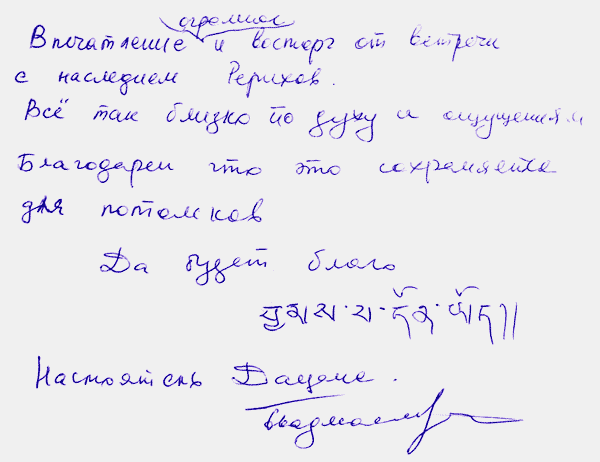 огромное
Впечатление и восторг от встречи
с наследием Рерихов.
Всё так близко по духу и ощущениям
Благодарен что это сохраняется
для потомков
Да будет благо
བྱམས་པ་དོན་ཡོད།།
Настоятель Дацана.